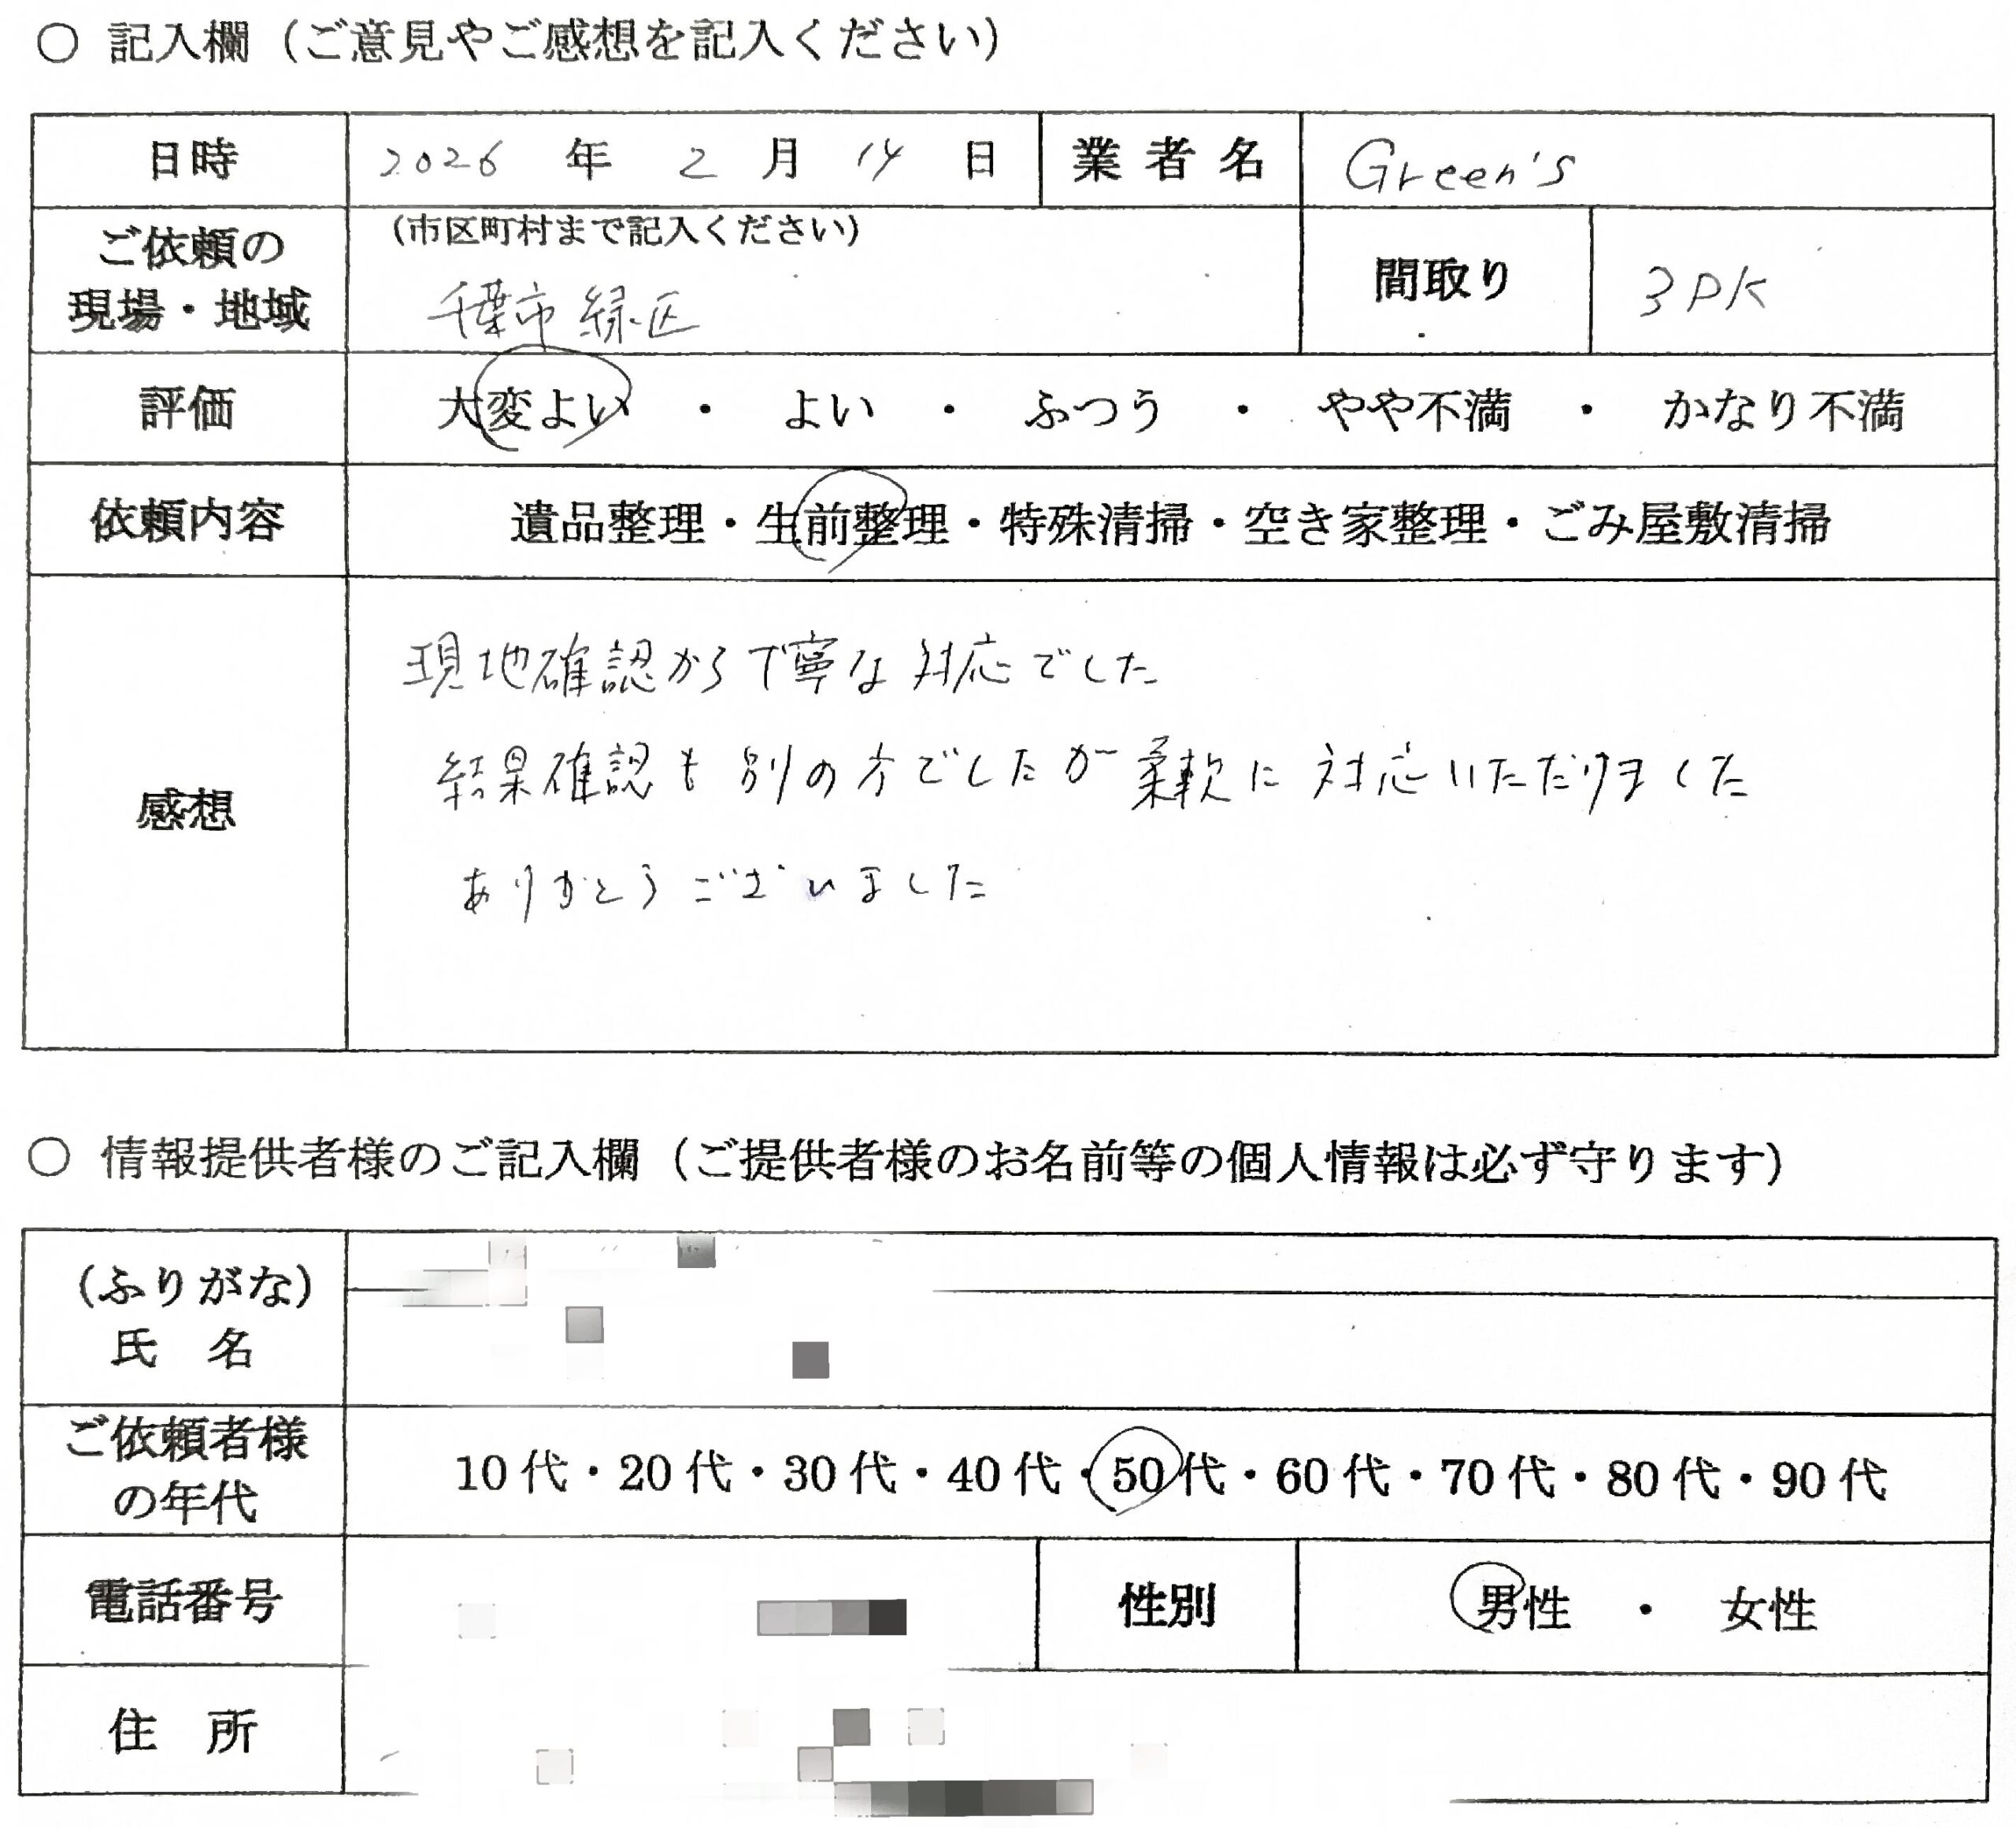 ○ 記入欄（ご意見やご感想を記入ください）
日時 2026 年 2 月 14 日 業者名 Green's
ご依頼の現場・地域 （市区町村まで記入ください） 間取り 3DK
千葉市緑区
評価 大変よい ・ よい ・ ふつう ・ やや不満 ・ かなり不満
依頼内容 遺品整理・生前整理・特殊清掃・空き家整理・ごみ屋敷清掃
感想
現地確認から丁寧な対応でした
結果確認も別の方でしたが柔軟に対応いただけました
ありがとうございました
○ 情報提供者様のご記入欄（ご提供者様のお名前等の個人情報は必ず守ります）
（ふりがな）
氏 名
ご依頼者様の年代 10代・20代・30代・40代・50代・60代・70代・80代・90代
電話番号 性別 男性 ・ 女性
住 所